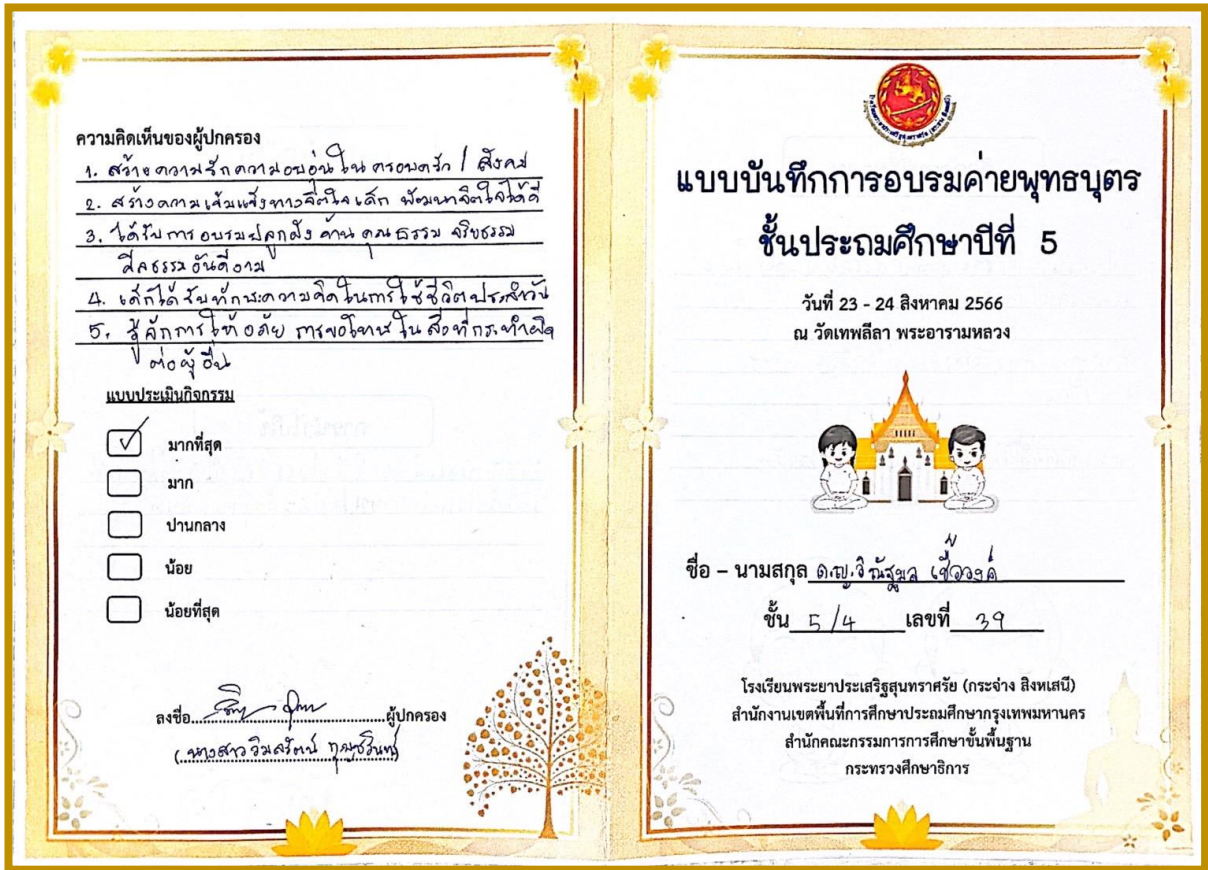 ความคิดเห็นของผู้ปกครอง
1. สร้างความรักความอบอุ่นในครอบครัว / สังคม
2. สร้างความเข้มแข็งทางจิตใจเด็ก พัฒนาจิตใจได้ดี
3. ได้รับการอบรมปลูกฝัง ด้าน คุณธรรม จริยธรรม
ศีลธรรมอันดีงาม
4. เด็กได้รับทักษะความคิดในการใช้ชีวิตประจำวัน
5. รู้จักการให้อภัย การขอโทษในสิ่งที่กระทำผิด
ต่อผู้อื่น
แบบประเมินกิจกรรม
มากที่สุด
มาก
ปานกลาง
น้อย
น้อยที่สุด
ลงชื่อ ผู้ปกครอง
(นางสาววิมลรัตน์)
แบบบันทึกการอบรมค่ายพุทธบุตร
ชั้นประถมศึกษาปีที่ 5
วันที่ 23 - 24 สิงหาคม 2566
ณ วัดเทพลีลา พระอารามหลวง
ชื่อ – นามสกุล ด.ญ.
ชั้น 5/4 เลขที่ 39
โรงเรียนพระยาประเสริฐสุนทราศรัย (กระจ่าง สิงหเสนี)
สำนักงานเขตพื้นที่การศึกษาประถมศึกษากรุงเทพมหานคร
สำนักคณะกรรมการการศึกษาขั้นพื้นฐาน
กระทรวงศึกษาธิการ